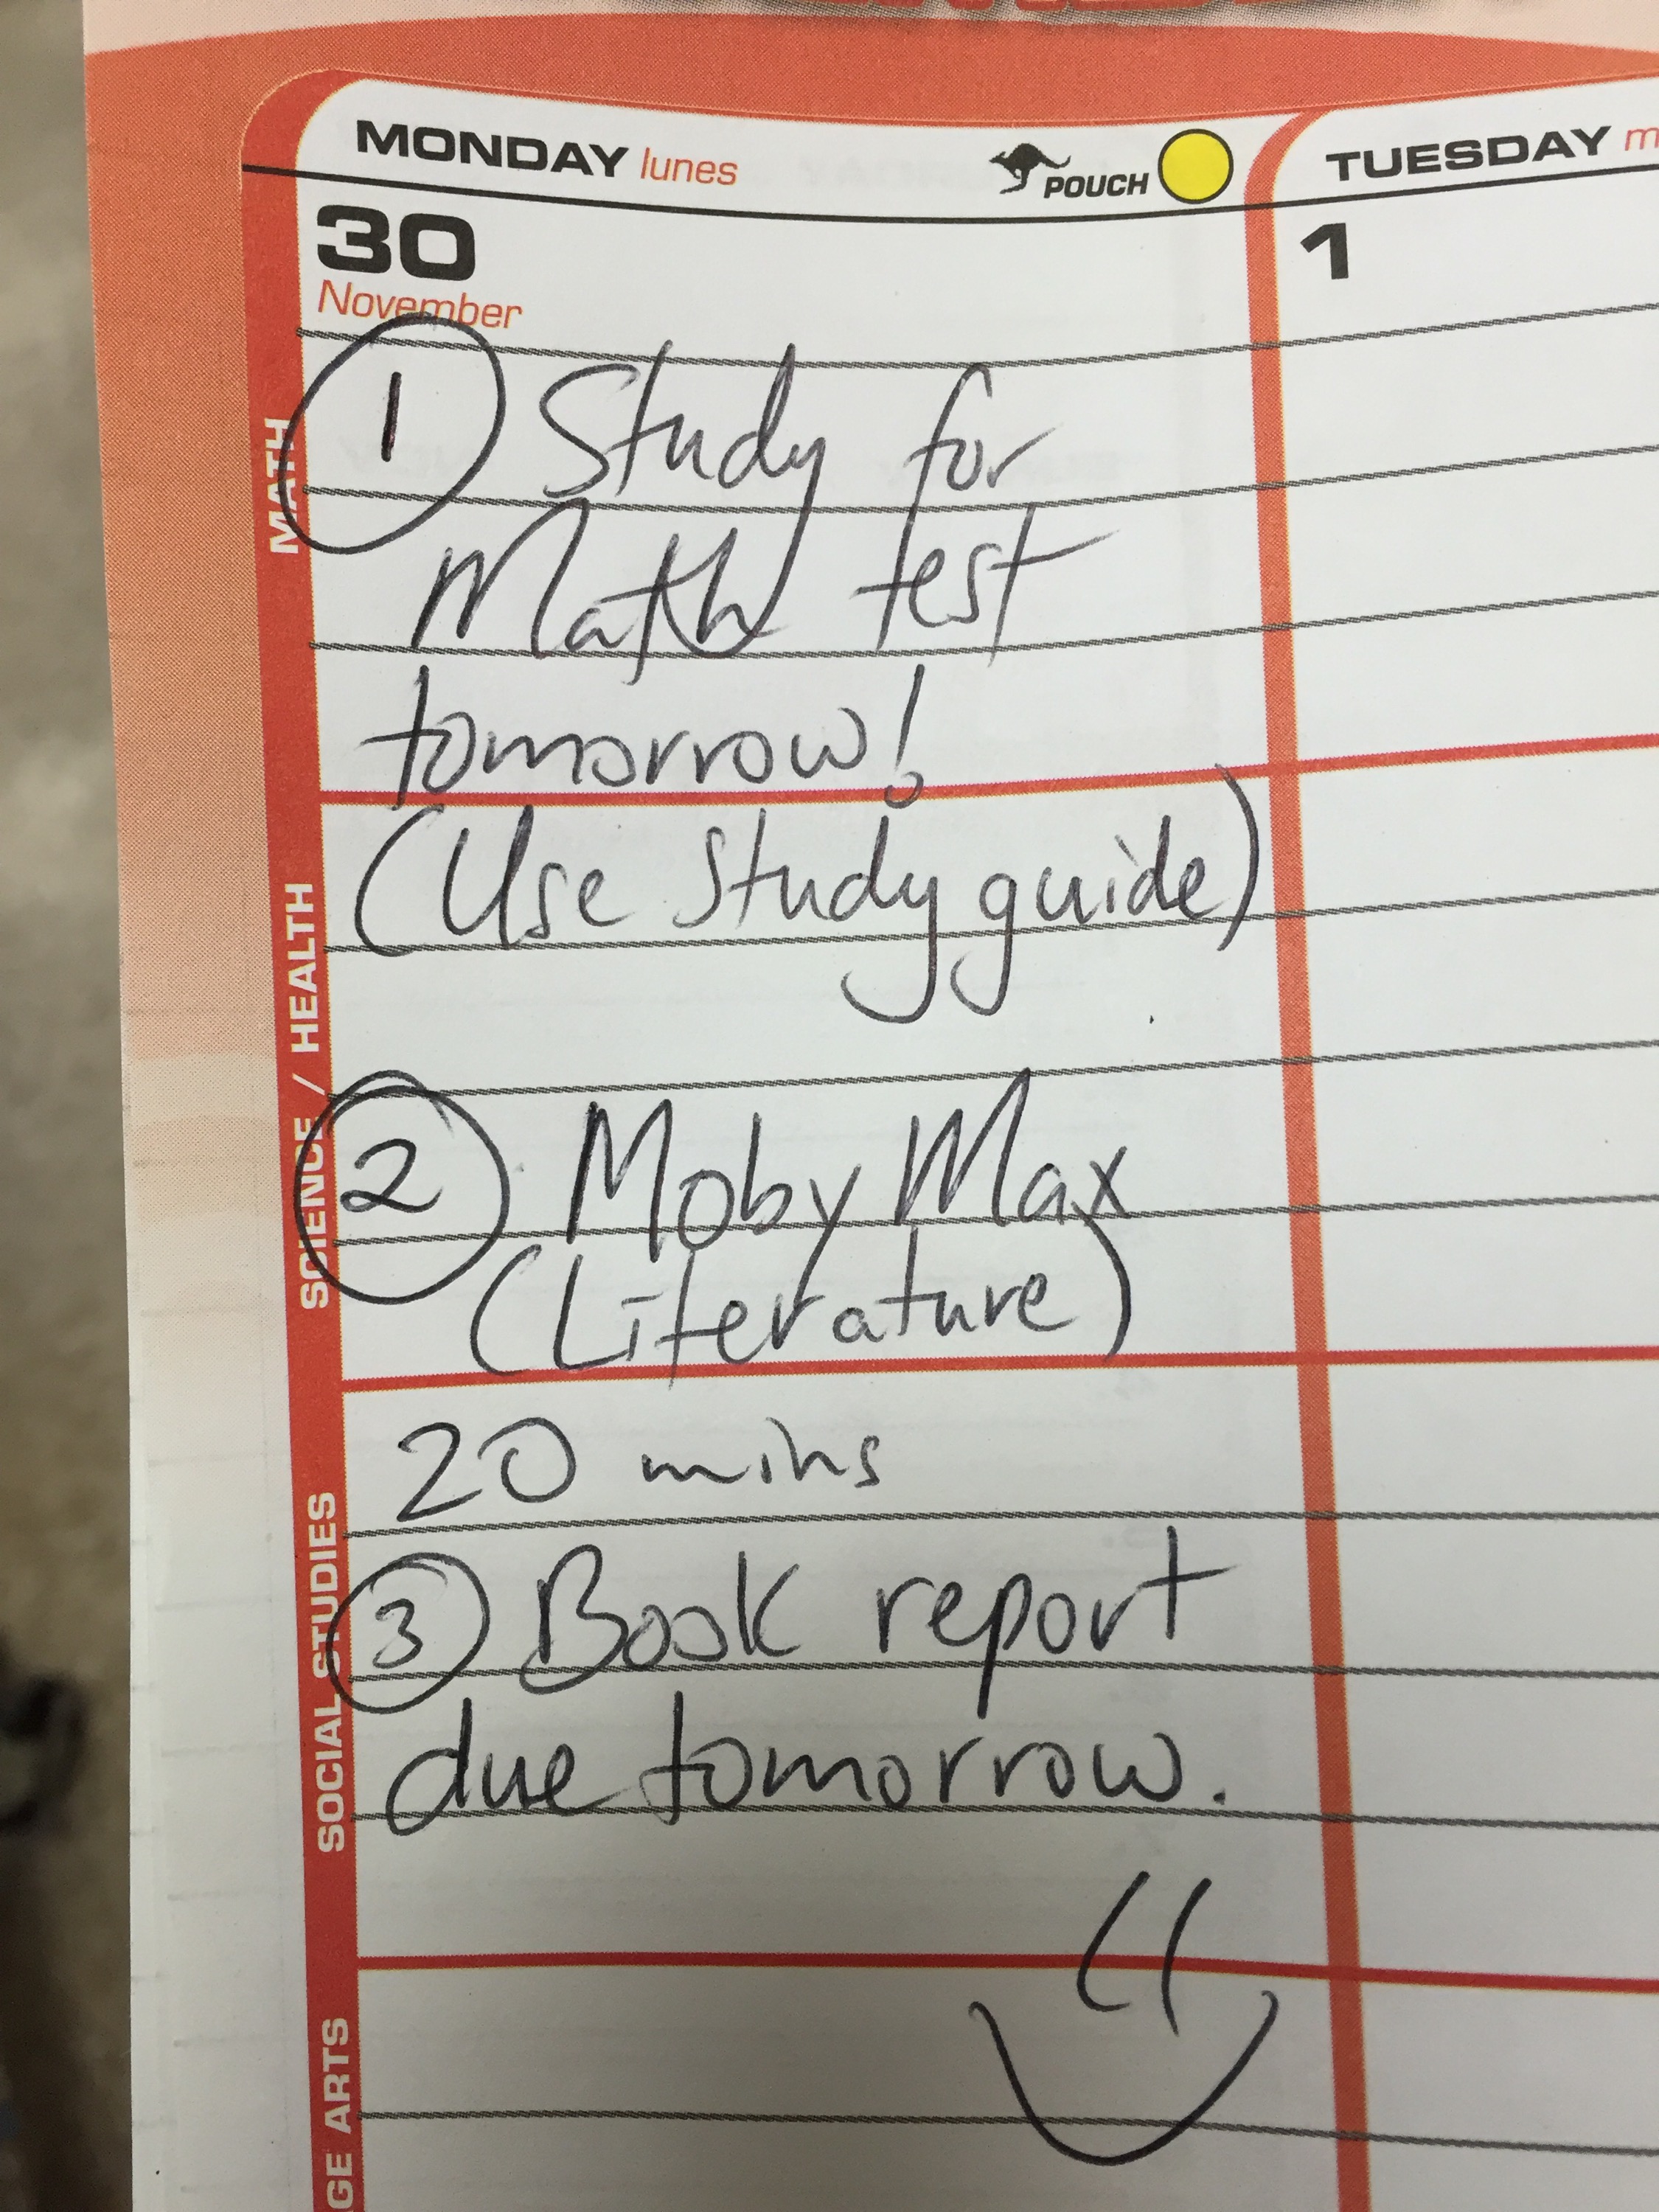 MONDAY lunes POUCH TUESDAY m
30 1
November
MATH
1 Study for
Math test
tomorrow!
(Use study guide)
SCIENCE / HEALTH
2 Moby Max
(Literature)
20 mins
SOCIAL STUDIES
3 Book report
due tomorrow.
GE ARTS